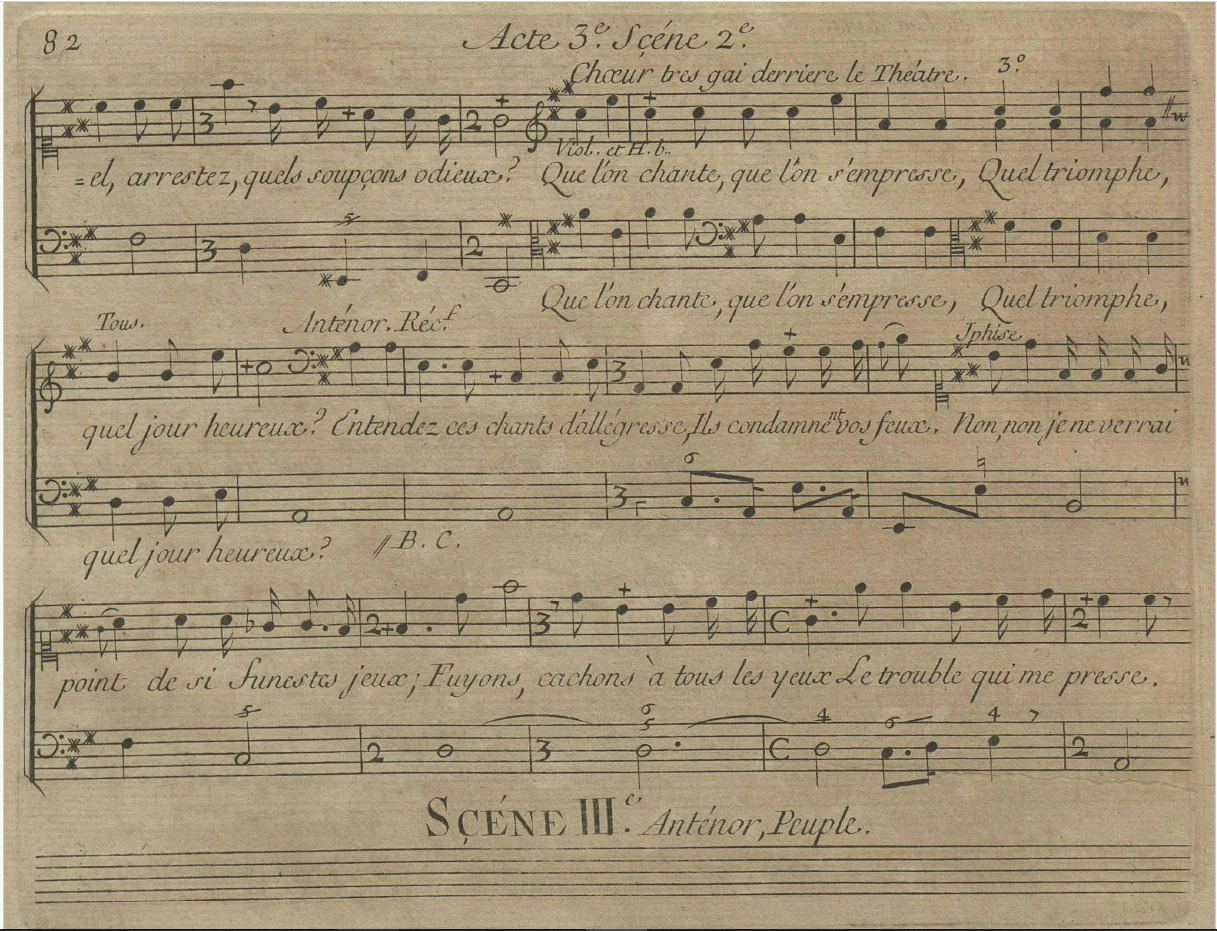 82
Acte 3.e Sçéne 2.e
Chœur tres gai derriere le Théatre. 3.o
Viol. et H.b.
=el, arrestez, quels soupçons odieux? Que l'on chante, que l'on s'empresse, Quel triomphe,
Que l'on chante, que l'on s'empresse, Quel triomphe,
Tous. Anténor. Réc.f Iphise
quel jour heureux? Entendez ces chants d'allégresse, Ils condamnent vos feux. Non, non je ne verrai
quel jour heureux? B. C.
point de si funestes jeux; Fuyons, cachons à tous les yeux Le trouble qui me presse.
SÇÉNE III.e Anténor, Peuple.